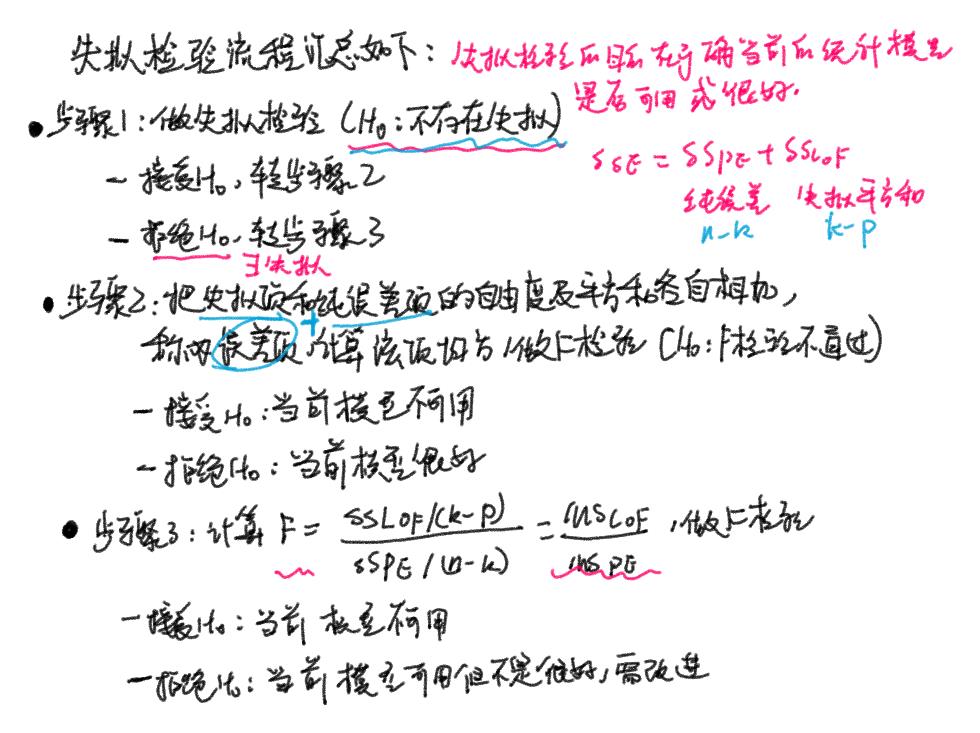 失拟检验流程汇总如下：失拟检验的目的在于确当前的统计模型
是否可用或很好.
• 步骤1：做失拟检验 (H₀：不存在失拟)
SSE = SSPE + SSLOF
纯误差 失拟平方和
n-k k-p
- 接受H₀，转步骤2
- 拒绝H₀，转步骤3
∃失拟
• 步骤2：把失拟项和纯误差项的自由度及平方和各自相加，
+
称为误差项，计算该项均方，做F检验 (H₀：F检验不通过)
- 接受H₀：当前模型不可用
- 拒绝H₀：当前模型很好
• 步骤3：计算 F = SSLOF/(k-p) / SSPE/(n-k) = MSLOF / MSPE，做F检验
- 接受H₀：当前模型不可用
- 拒绝H₀：当前模型可用但不是很好，需改进